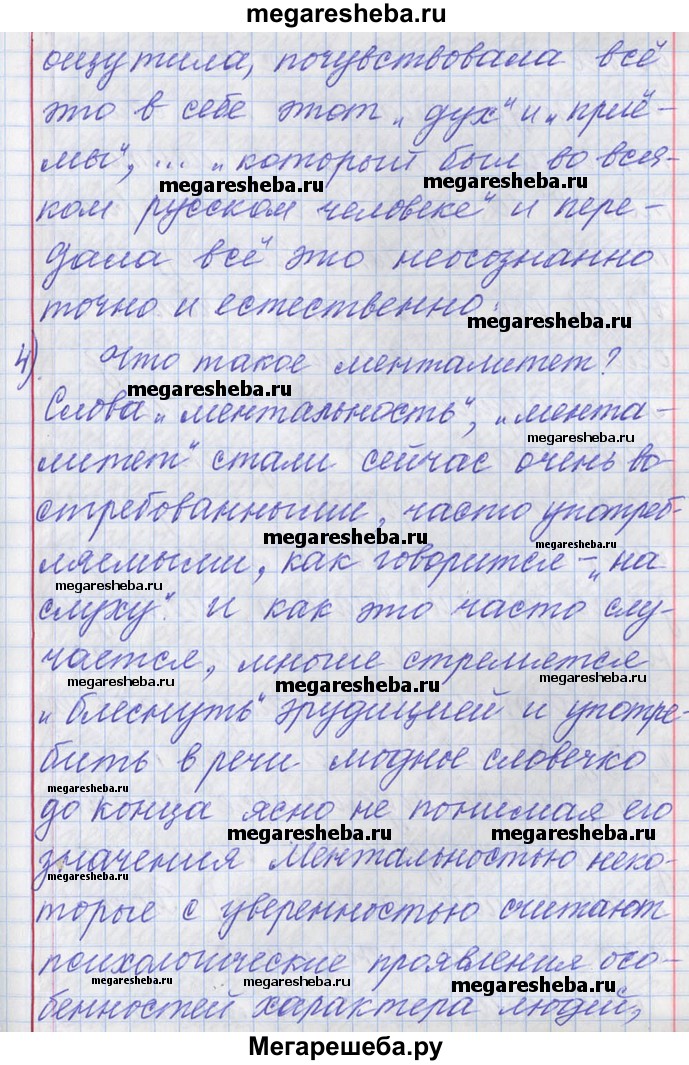 megaresheba.ru
ощутила, почувствовала всё
это в себе этот „дух“ и „приё-
мы“, ... „который был во вся-
megaresheba.ru megaresheba.ru
ком русском человеке“ и пере-
дала всё это неосознанно
точно и естественно.
megaresheba.ru
4) Что такое менталитет?
megaresheba.ru
Слова „ментальность“, „мента-
megaresheba.ru
литет“ стали сейчас очень во-
стребованными, часто употреб-
megaresheba.ru
ляемыми, как говорится – „на
megaresheba.ru megaresheba.ru
слуху“. И как это часто слу-
чается, многие стремятся
megaresheba.ru megaresheba.ru megaresheba.ru
„блеснуть“ эрудицией и употре-
бить в речи модное словечко
до конца ясно не понимая его
megaresheba.ru megaresheba.ru
значения Ментальностью неко-
megaresheba.ru
торые с уверенностью считают
психологические проявления осо-
megaresheba.ru
бенностей характера людей,
megaresheba.ru
Мегарешеба.ру